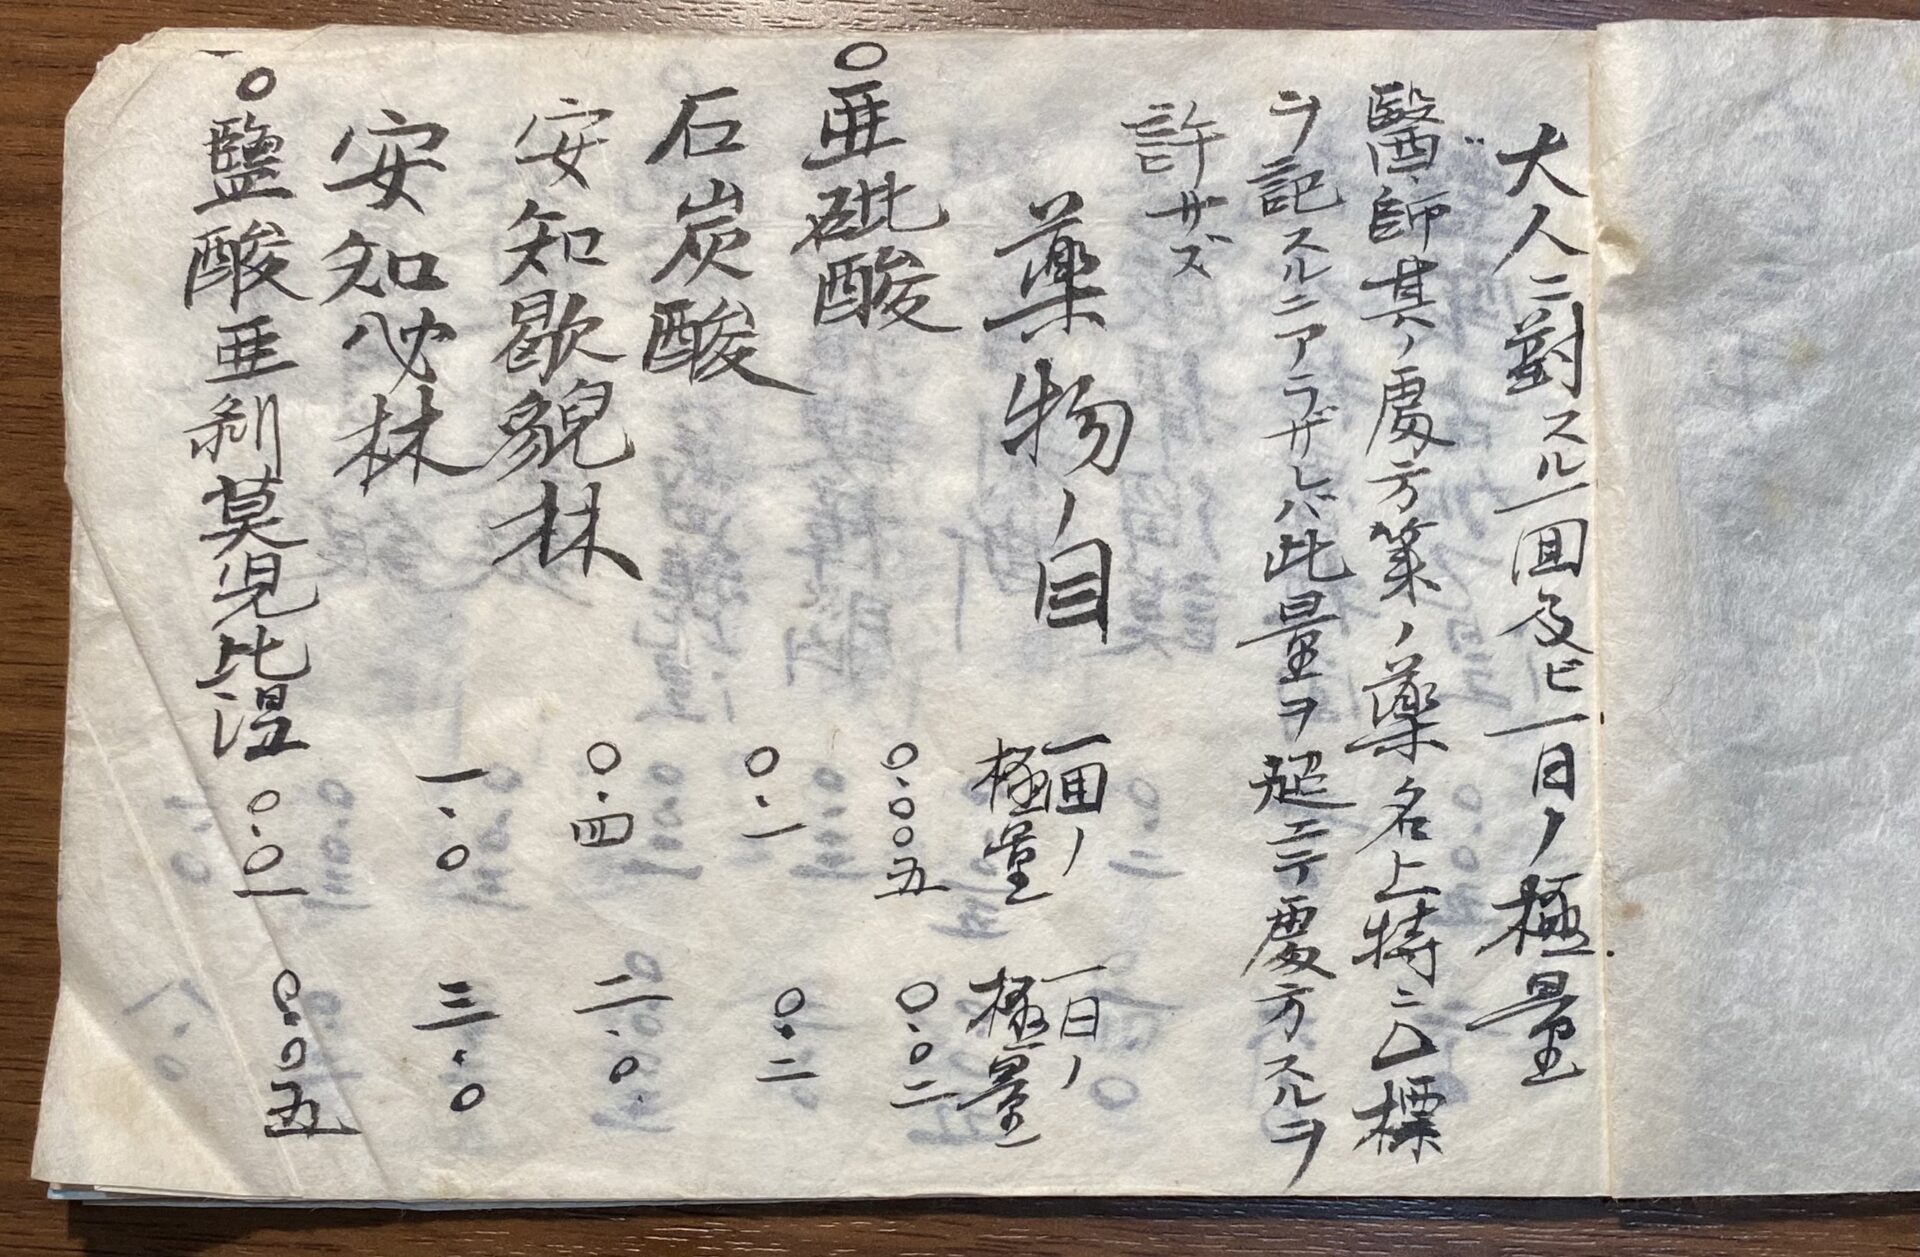 大人ニ對スル一回及ビ一日ノ極量
醫師其ノ處方箋ノ藥名上特ニ乙標
ヲ記スルニアラザレバ此量ヲ超エテ處方スルヲ
許サズ
藥物ノ目 一回ノ極量 一日ノ極量
〇亜砒酸 〇.〇〇五 〇.〇二
石炭酸 〇.一 〇.二
安知歇貌林 〇.四 二.〇
安知必林 一.〇 三.〇
〇鹽酸亜剥莫児比涅 〇.〇一 〇.〇五